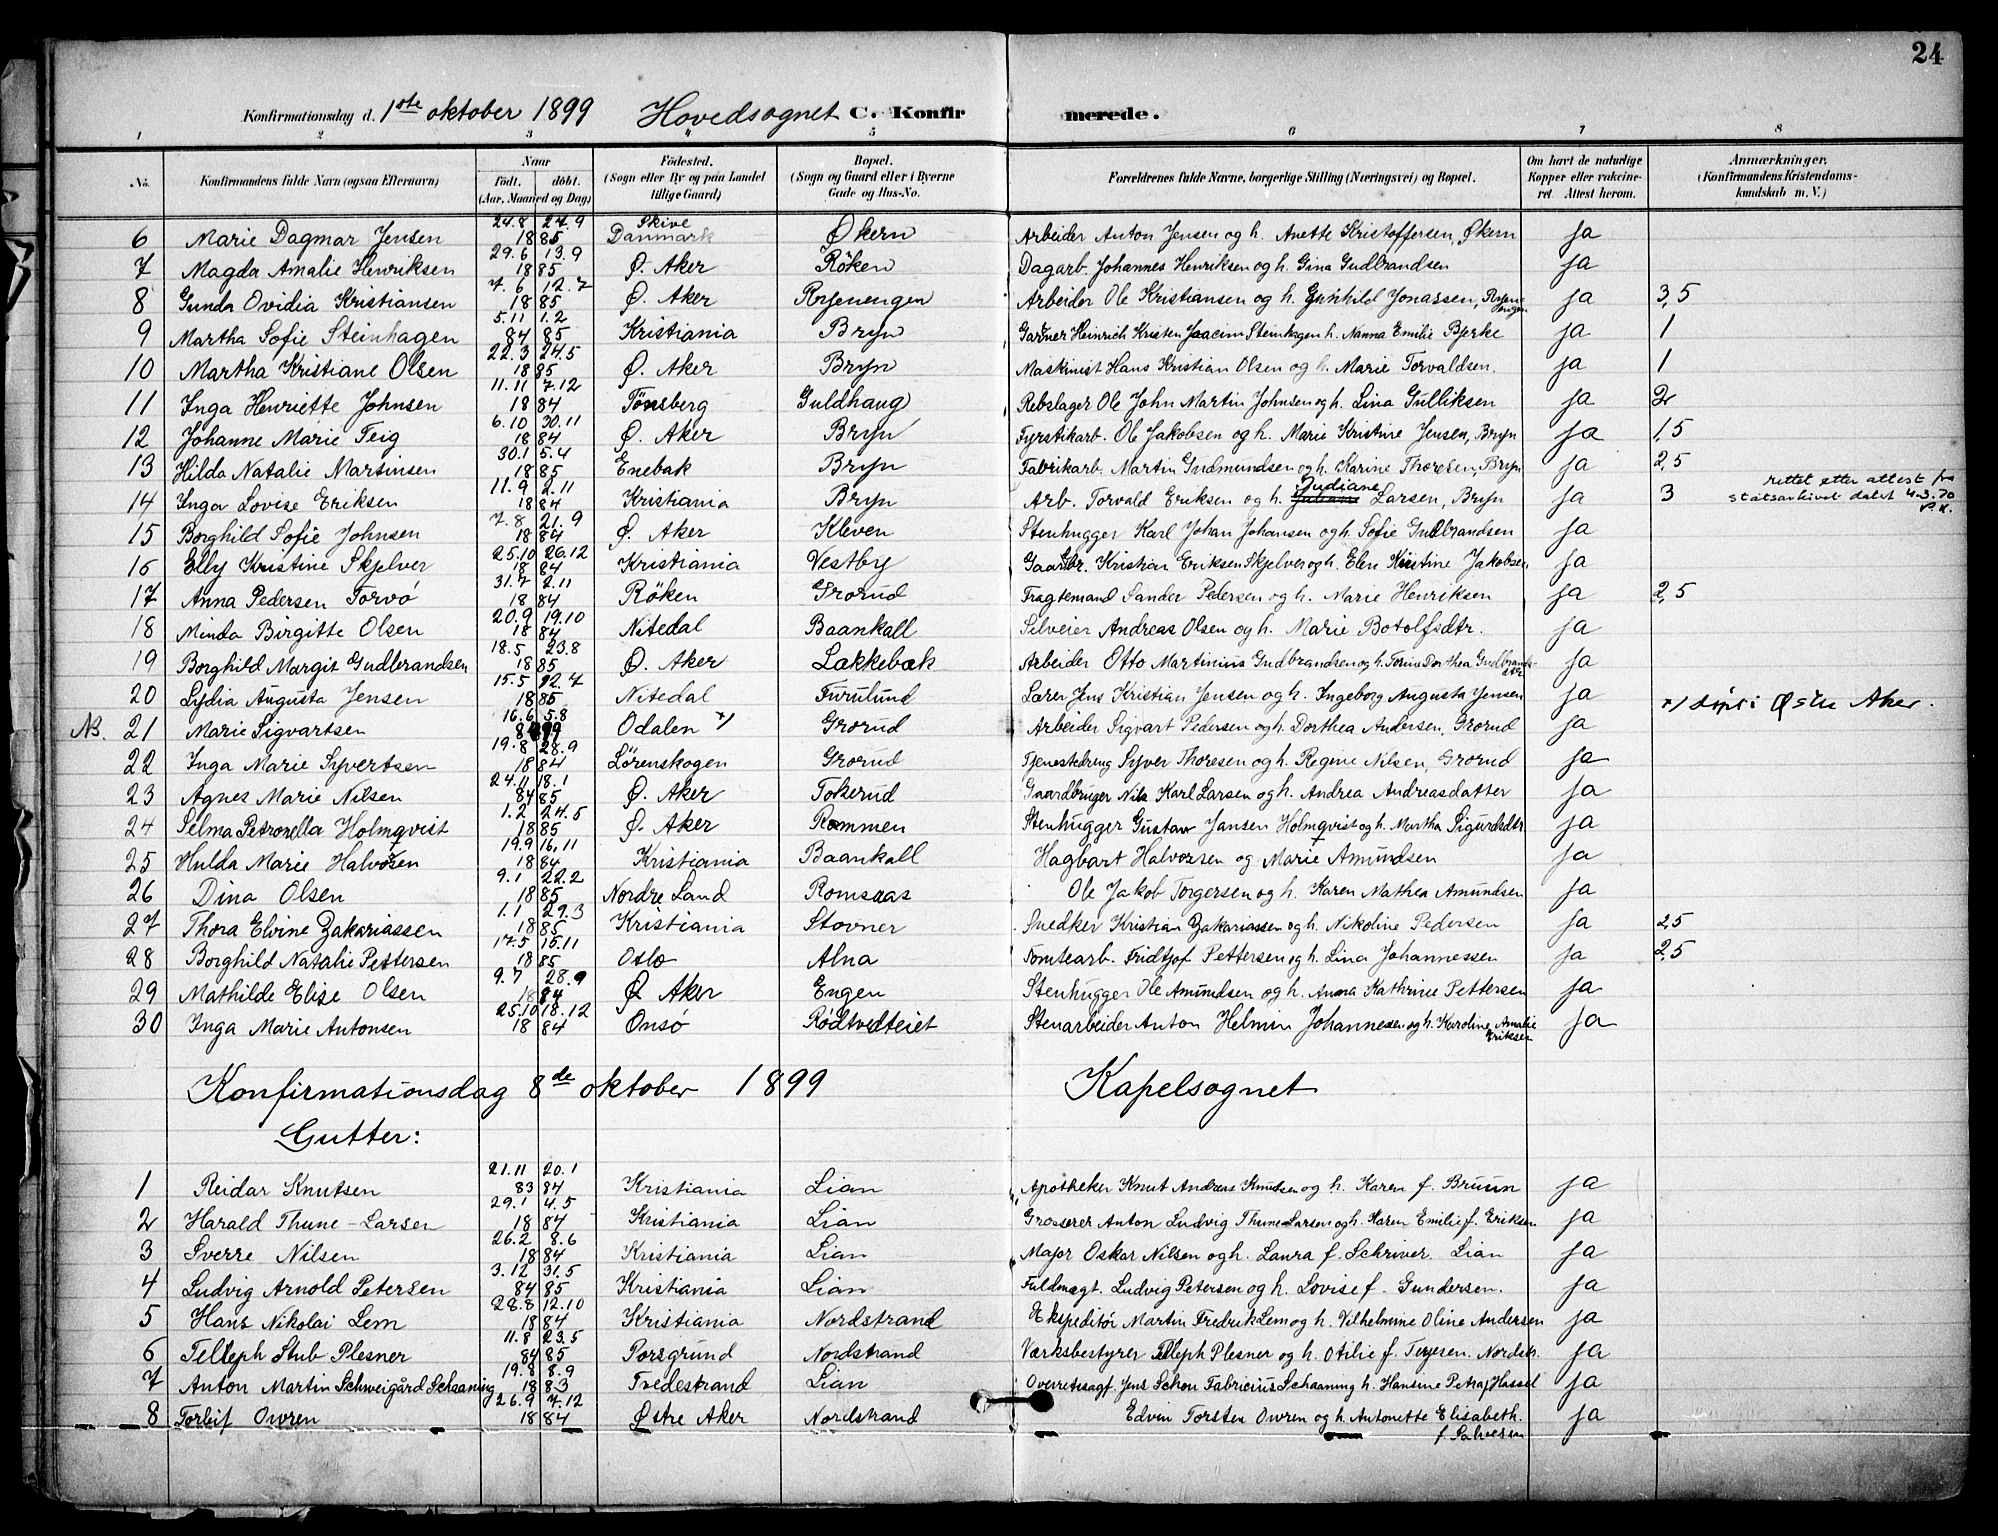 24
Konfirmationsdag d. 1ste oktober 1899 Hovedsognet C. Konfirmerede.
1 2 3 4 5 6 7 8
No. Konfirmandens fulde Navn (ogsaa Efternavn) Naar Födt. döbt. (Aar, Maaned og Dag) Födested. (Sogn eller By og paa Landet tillige Gaard) Bopæl. (Sogn og Gaard eller i Byerne Gade og Hus-No. Forældrenes fulde Navne, borgerlige Stilling (Næringsvei) og Bopæl. Om havt de naturlige Kopper eller vakcineret. Attest herom. Anmærkninger. (Konfirmandens Kristendomskundskab m. V.)
6 Marie Dagmar Jensen 24.8 1885 24.9 Skive Danmark Økern Arbeider Anton Jensen og h. Anette Kristoffersen, Økern ja
7 Magda Amalie Henriksen 29.6 13.9 1885 Ø. Aker Röken Dagarb. Johannes Henriksen og h. Gina Gudbrandsen ja
8 Gunda Ovidia Kristiansen 7.6 12.7 1885 Ø. Aker Ryenengen Arbeider Ole Kristiansen og h. Gunhild Jonassen, Ryenengen ja 3,5
9 Martha Sofie Steinhagen 5.11 84 1.2 85 Kristiania Bryn Gartner Heinrich Kristen Joacim Steinhagen h. Nanna Emilie Bjerke ja 1
10 Martha Kristiane Olsen 22.3 24.5 1885 Ø. Aker Bryn Maskinist Hans Kristian Olsen og h. Marie Torvaldsen. ja 1
11 Inga Henriette Johnsen 11.11 7.12 1884 Tönsberg Guldhaug Rebslager Ole John Martin Johnsen og h. Lina Gulliksen ja 2
12 Johanne Marie Teig 6.10 30.11 1884 Ø. Aker Bryn Fyrstikarb. Ole Jakobsen og h. Marie Kristine Jensen, Bryn ja 1,5
13 Hilda Natalie Martinsen 30.1 5.4 1885 Enebak Bryn Fabrikarb. Martin Gudmundsen og h. Karine Thoresen, Bryn ja 2,5
14 Inga Lovise Eriksen 11.9 2.11 1884 Kristiania Bryn Arb. Torvald Eriksen og h. Judiane Larsen, Bryn ja 3 rettet etter attest fra statsarkivet datet 4.3.70
15 Borghild Sofie Johnsen 7.8 21.9 1884 Ø. Aker Kleven Stenhugger Karl Johan Johansen og h. Sofie Gudbrandsen ja
16 Elly Kristine Skjelver 25.10 26.12 1884 Kristiania Vestby Gaardbr. Kristian Eriksen Skjelver og h. Elen Kristine Jakobsen ja
17 Anna Pedersen Torvö 31.7 2.11 1884 Röken Grorud Fragtemand Sander Pedersen og h. Marie Henriksen ja 2,5
18 Minda Birgitte Olsen 20.9 19.10 1884 Nitedal Baankall Selveier Andreas Olsen og h. Marie Botolfsdtr. ja
19 Borghild Margit Gudbrandsen 18.5 23.8 1885 Ø. Aker Lakkebæk Arbeider Otto Martinius Gudbrandsen og h. Torine Dorthea Gudbrandsdtr ja
20 Lydia Augusta Jensen 15.5 12.7 1885 Nitedal Furulund Lærer Jens Kristian Jensen og h. Ingeborg Augusta Jensen ja
NB. 21 Marie Sigvartsen 16.6 5.8 Odalen x) Grorud Arbeider Sigvart Pedersen og h. Dorthea Andersen, Grorud ja x) døpt i Østre Aker.
22 Inga Marie Syvertsen 19.8 28.9 1884 Lörenskogen Grorud Tjenestedreng Syver Thoresen og h. Regine Nilsen, Grorud ja
23 Agnes Marie Nilsen 24.11 84 18.1 85 Ø. Aker Tokerud Gaardbruger Nils Karl Larsen og h. Andrea Andreasdatter ja
24 Selma Petronella Holmqvist 1.2 24.5 1885 Ø. Aker Rommen Stenhugger Gustav Jansen Holmqvist og h. Martha Sigurdsdtr ja
25 Hulda Marie Halvorsen 19.9 16.11 1884 Kristiania Baankall Hagbart Halvorsen og Marie Amundsen ja
26 Dina Olsen 9.1 22.2 1885 Nordre Land Romsaas Ole Jakob Torgersen og h. Karen Mathea Amundsen ja
27 Thora Elvine Zakariassen 1.1 29.3 1885 Kristiania Stovner Snedker Kristian Zakariassen og h. Nikoline Pedersen ja 2,5
28 Borghild Natalie Pettersen 17.5 15.11 1885 Oslo Alna Tomtearb. Fridtjof Pettersen og h. Lina Johannessen ja 2,5
29 Mathilde Elise Olsen 9.7 28.9 1884 Ø Aker Engen Stenhugger Ole Amundsen og h. Anna Kathrine Pettersen ja
30 Inga Marie Antonsen 25.10 18.12 1884 Onsö Rödtvedteiet Stenarbeider Anton Helmin Johannesen og h. Karoline Amalie Eriksen ja
Konfirmationsdag 8de oktober 1899 Kapelsognet
Gutter:
1 Reidar Knutsen 21.11 83 20.1 84 Kristiania Lian Apotheker Knut Andreas Knutsen og h. Karen f. Bruun ja
2 Harald Thune-Larsen 29.1 4.5 1884 Kristiania Lian Grosserer Anton Ludvig Thune Larsen og h. Karen Emilie f. Eriksen ja
3 Sverre Nilsen 26.2 8.6 1884 Kristiania Lian Major Oskar Nilsen og h. Laura f. Schriver. Lian ja
4 Ludvig Arnold Petersen 3.12 84 31.5 85 Kristiania Lian Fuldmægt. Ludvig Petersen og h. Lovise f. Gundersen. ja
5 Hans Nikolai Lem 28.8 12.10 1884 Kristiania Nordstrand Ekspeditör Martin Fredrik Lem og h. Vilhelmine Oline Andersen ja
6 Telleph Stub Plesner 11.8 84 23.5 85 Porsgrund Nordstrand Værksbestyrer Telleph Plesner og h. Otilie f. Terjesen. Nordstr. ja
7 Anton Martin Schweigård Schaaning 19.8 8.9 1883 Tvedestrand Lian Overretssagf. Jens Schou Fabricius Schaaning h. Hansine Petra f Hassel ja
8 Torleif Owren 26.9 7.12 1884 Østre Aker Nordstrand Edvin Torsten Owren og h. Antonette Elisabeth. ja